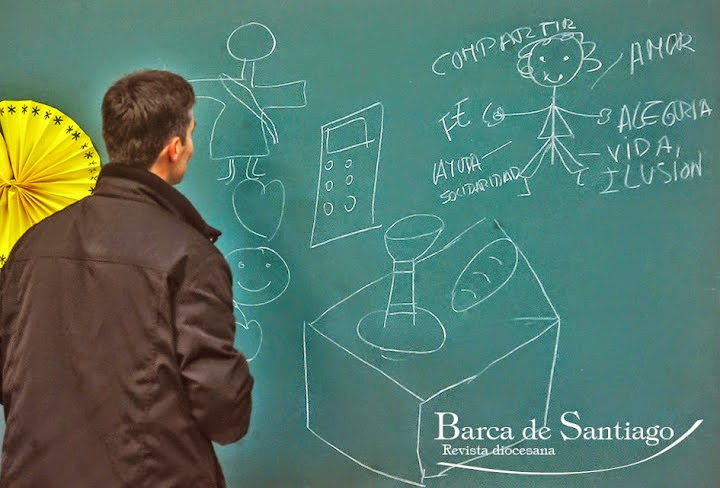 COMPARTIR
AMOR
FE
ALEGRIA
AYUDA
SOLIDARIDAD
VIDA,
ILUSIÓN
Barca de Santiago
Revista diocesana